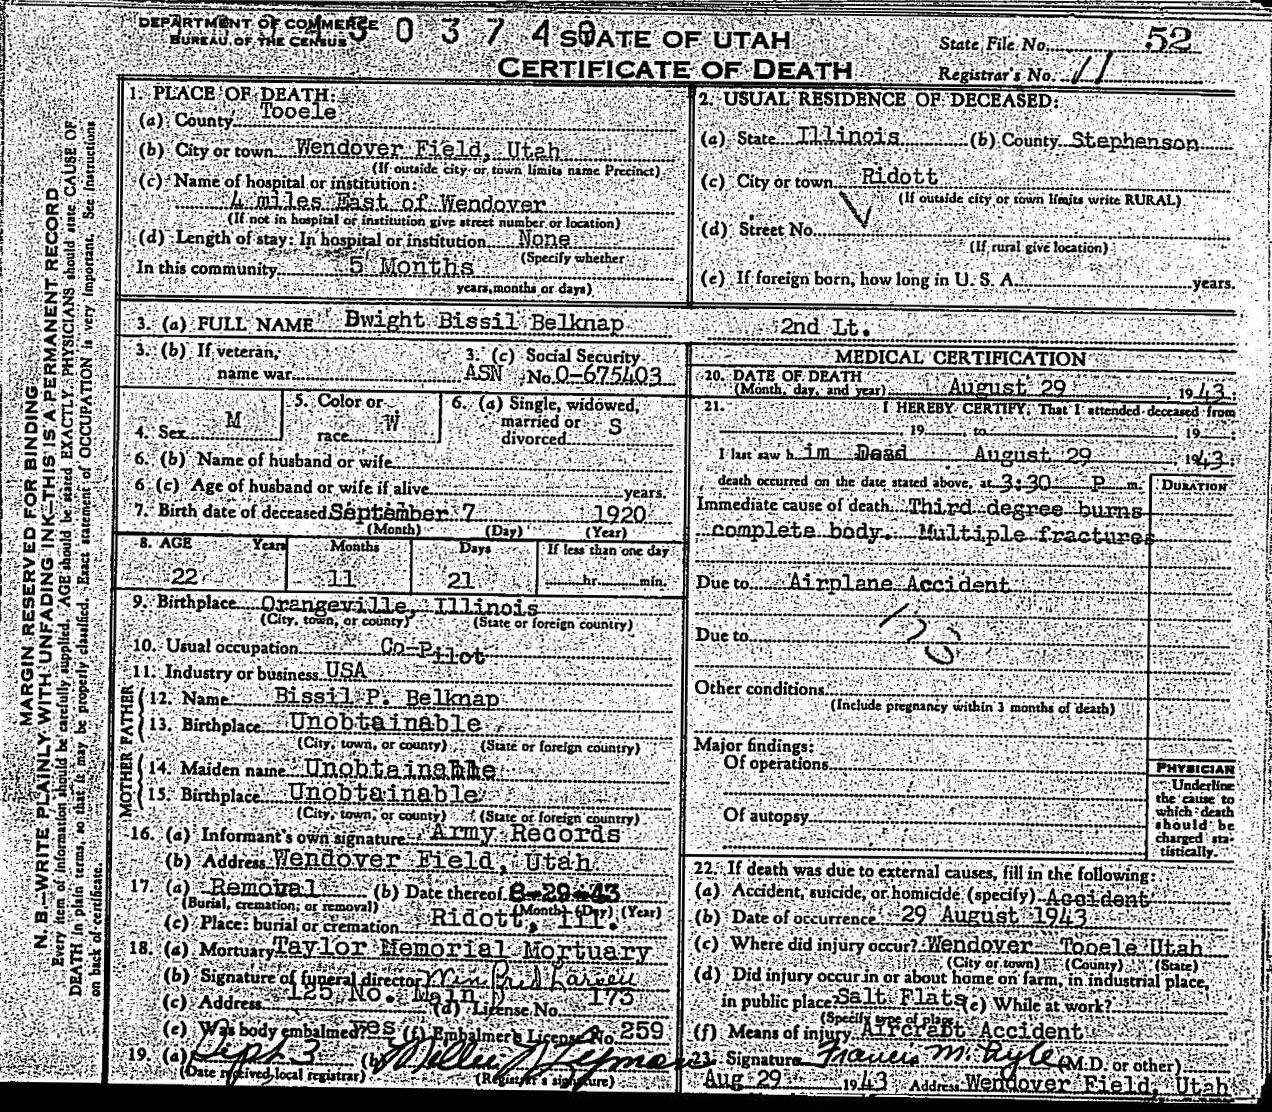 DEPARTMENT OF COMMERCE
BUREAU OF THE CENSUS
0 3 7 4 0
STATE OF UTAH
CERTIFICATE OF DEATH
State File No. 52
Registrar's No. 11
MARGIN RESERVED FOR BINDING
N. B.—WRITE PLAINLY WITH UNFADING INK—THIS IS A PERMANENT RECORD
Every item of information should be carefully supplied. AGE should be stated EXACTLY. PHYSICIANS should state CAUSE OF
DEATH in plain terms, so that it may be properly classified. Exact statement of OCCUPATION is very important. See Instructions
on back of certificate.
1. PLACE OF DEATH:
(a) County Tooele
(b) City or town Wendover Field, Utah
(If outside city or town limits name Precinct)
(c) Name of hospital or institution:
4 miles East of Wendover
(If not in hospital or institution give street number or location)
(d) Length of stay: In hospital or institution None
(Specify whether
In this community 5 Months
years, months or days)
2. USUAL RESIDENCE OF DECEASED:
(a) State Illinois (b) County Stephenson
(c) City or town Ridott
(If outside city or town limits write RURAL)
(d) Street No.
(If rural give location)
(e) If foreign born, how long in U. S. A. years.
3. (a) FULL NAME Dwight Bissil Belknap 2nd Lt.
3. (b) If veteran, name war
3. (c) Social Security
ASN No. O-675403
4. Sex M
5. Color or race W
6. (a) Single, widowed, married or divorced S
6. (b) Name of husband or wife
6 (c) Age of husband or wife if alive years.
7. Birth date of deceased September 7 1920
(Month) (Day) (Year)
8. AGE Years Months Days If less than one day
22 11 21 hr. min.
9. Birthplace Orangeville, Illinois
(City, town, or county) (State or foreign country)
10. Usual occupation Co-Pilot
11. Industry or business USA
FATHER
12. Name Bissil P. Belknap
13. Birthplace Unobtainable
(City, town, or county) (State or foreign country)
MOTHER
14. Maiden name Unobtainable
15. Birthplace Unobtainable
(City, town, or county) (State or foreign country)
16. (a) Informant's own signature Army Records
(b) Address Wendover Field, Utah
17. (a) Removal (b) Date thereof 8-29-43
(Burial, cremation, or removal) (Month) (Day) (Year)
(c) Place: burial or cremation Ridott, Ill.
18. (a) Mortuary Taylor Memorial Mortuary
(b) Signature of funeral director
(c) Address 125 No. Main (d) License No. 173
(e) Was body embalmed? yes (f) Embalmer's License No. 259
19. (a) Sept 3 (b)
(Date received local registrar) (Registrar's signature)
MEDICAL CERTIFICATION
20. DATE OF DEATH
(Month, day, and year) August 29 1943.
21. I HEREBY CERTIFY, That I attended deceased from
19 , to , 19 .
I last saw h im Dead August 29 1943.
death occurred on the date stated above, at 3:30 P m.
DURATION
Immediate cause of death Third degree burns
complete body. Multiple fractures
Due to Airplane Accident
Due to
Other conditions
(Include pregnancy within 3 months of death)
Major findings:
Of operations
Of autopsy
PHYSICIAN
Underline
the cause to
which death
should be
charged sta-
tistically.
22. If death was due to external causes, fill in the following:
(a) Accident, suicide, or homicide (specify) Accident
(b) Date of occurrence 29 August 1943
(c) Where did injury occur? Wendover Tooele Utah
(City or town) (County) (State)
(d) Did injury occur in or about home on farm, in industrial place,
in public place? Salt Flats (e) While at work?
(Specify type of place)
(f) Means of injury Aircraft Accident
23. Signature Francis M. Ryle (M.D. or other)
Aug 29 1943 Address Wendover Field, Utah